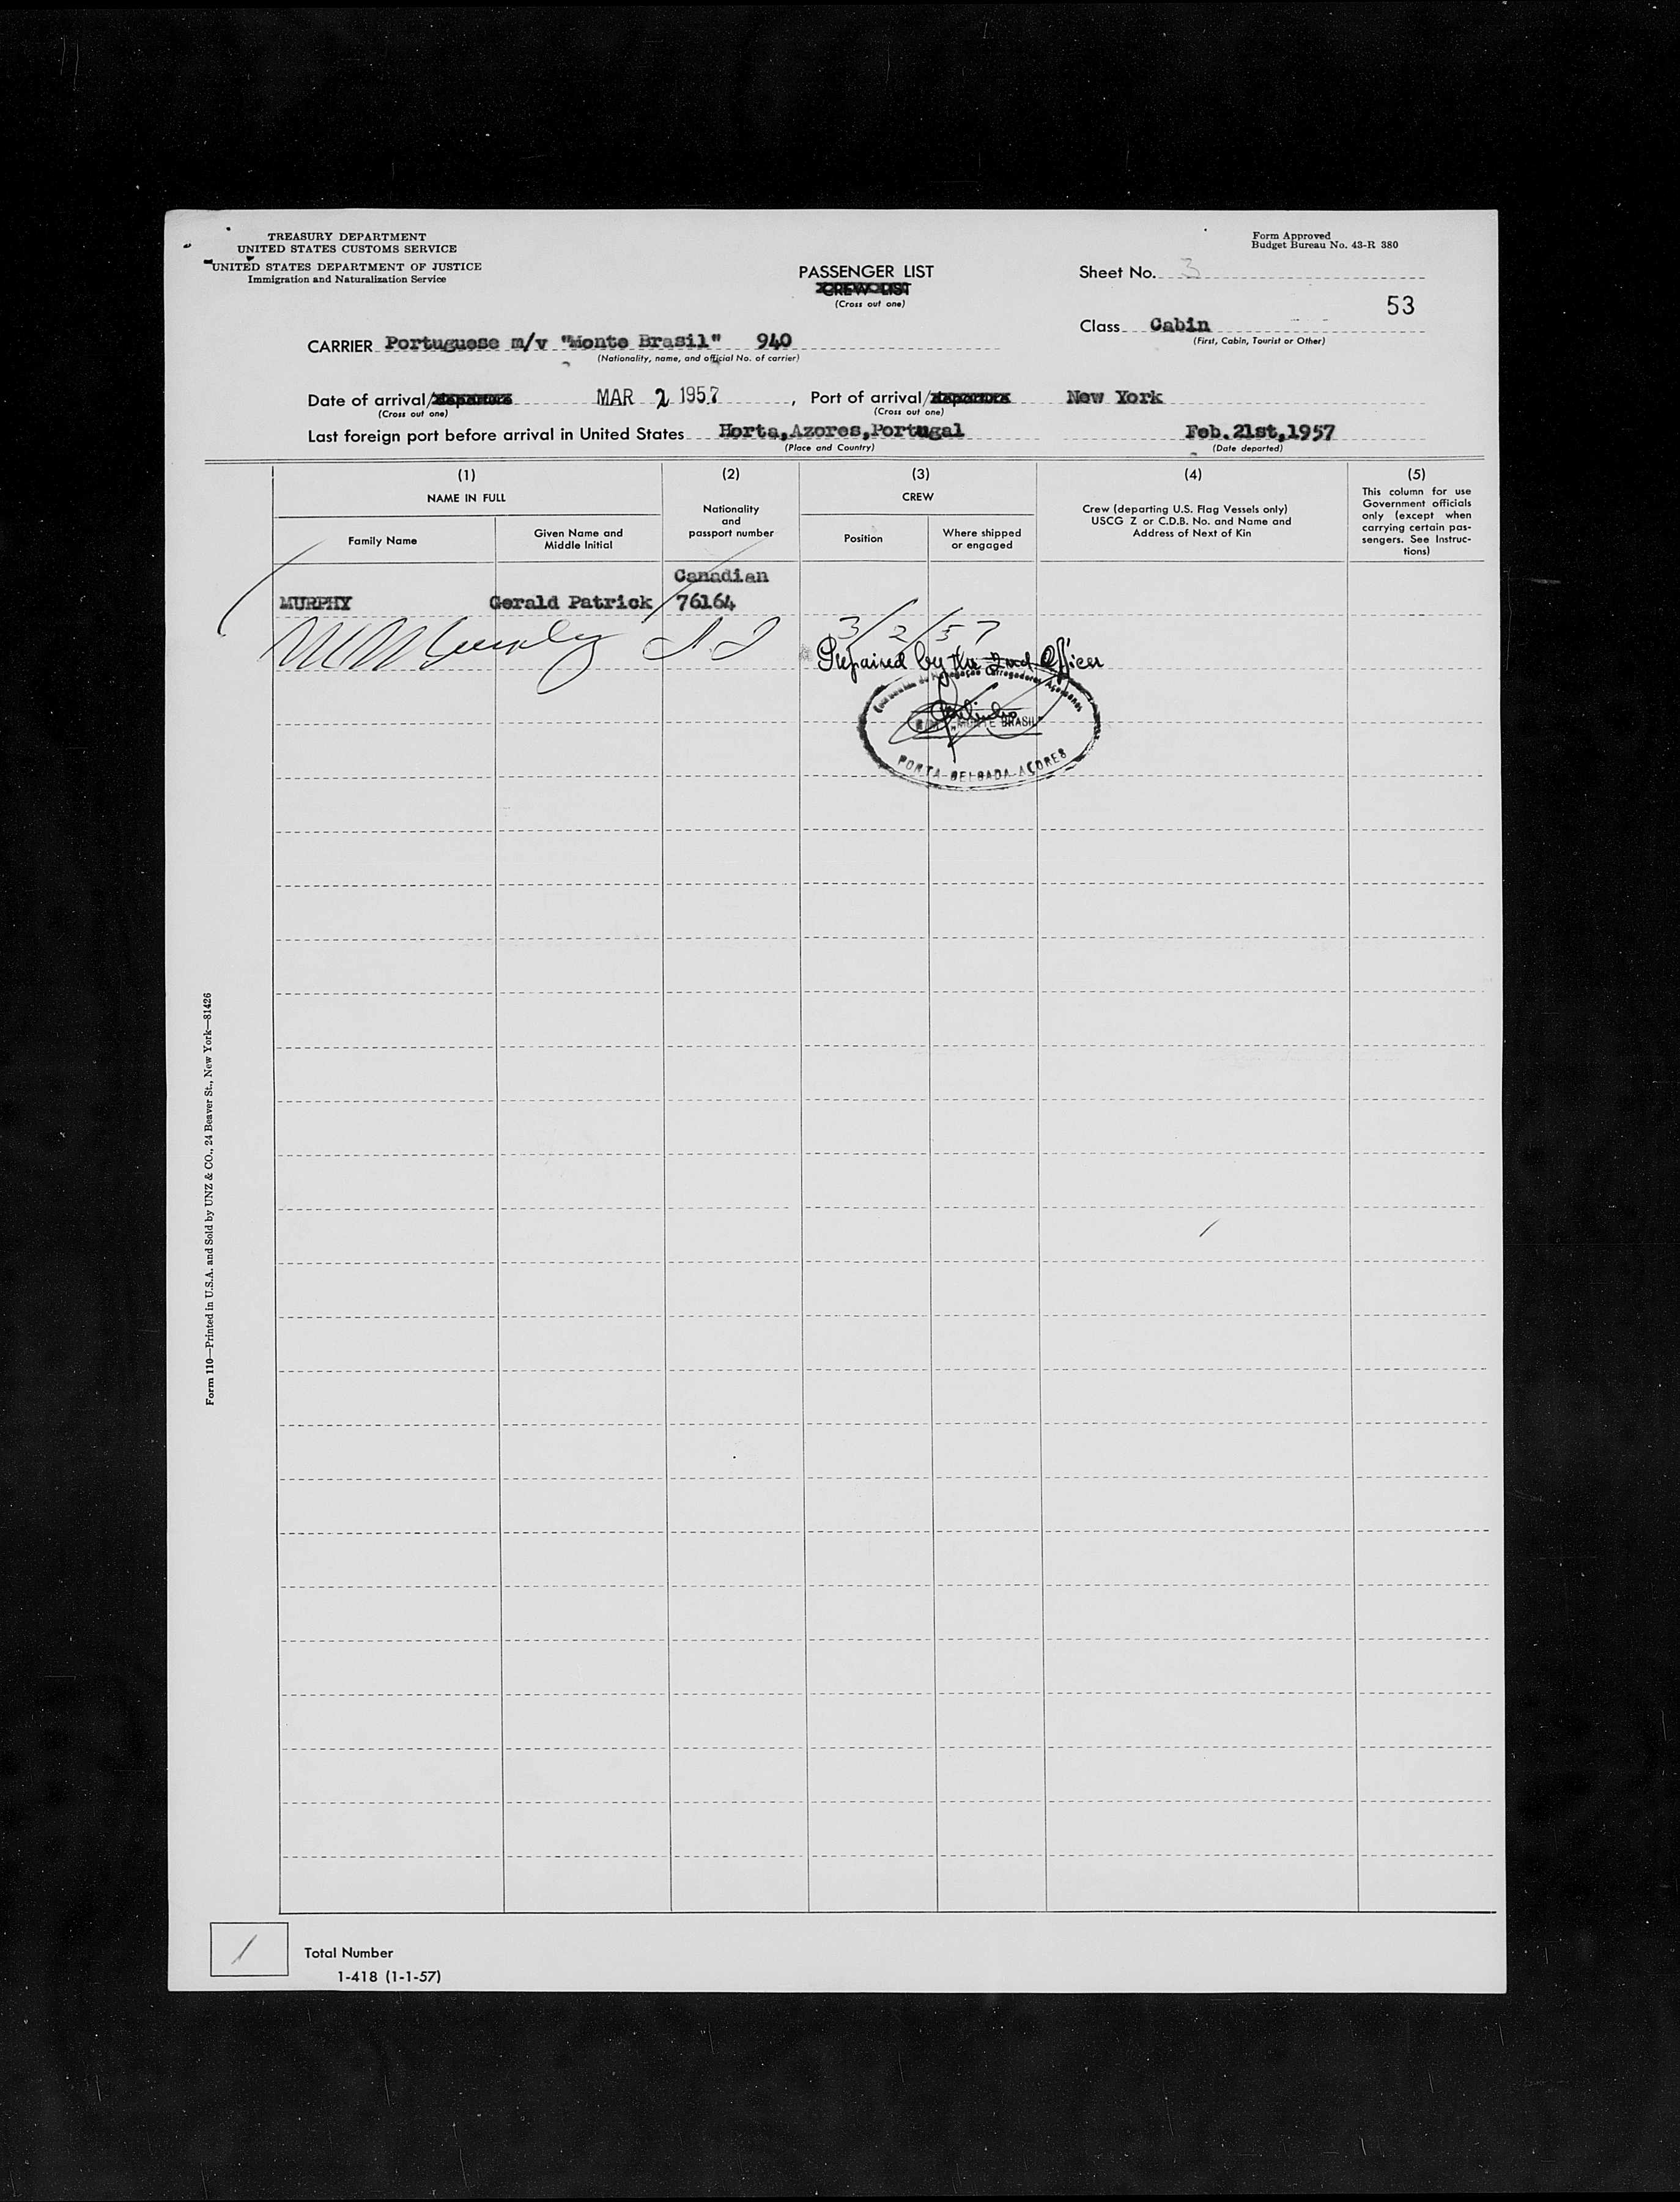 TREASURY DEPARTMENT
UNITED STATES CUSTOMS SERVICE
UNITED STATES DEPARTMENT OF JUSTICE
Immigration and Naturalization Service
Form Approved
Budget Bureau No. 43-R 380
PASSENGER LIST
CREW LIST
(Cross out one)
Sheet No. 3
53
Class Cabin
(First, Cabin, Tourist or Other)
CARRIER Portuguese m/v "Monte Brasil" 940
(Nationality, name, and official No. of carrier)
Date of arrival/departure MAR 2 1957, Port of arrival/departure New York
(Cross out one) (Cross out one)
Last foreign port before arrival in United States Horta,Azores,Portugal Feb.21st,1957
(Place and Country) (Date departed)
(1) (2) (3) (4) (5)
NAME IN FULL
Family Name
Given Name and
Middle Initial
Nationality
and
passport number
CREW
Position
Where shipped
or engaged
Crew (departing U.S. Flag Vessels only)
USCG Z or C.D.B. No. and Name and
Address of Next of Kin
This column for use
Government officials
only (except when
carrying certain pas-
sengers. See Instruc-
tions)
Canadian
MURPHY Gerald Patrick 76164
3/2/57
Prepaired by the 2nd Officer
Navegação Carregadores Açoreanos
"MONTE BRASIL"
PONTA DELGADA-AÇORES
Form 110—Printed in U.S.A. and Sold by UNZ & CO., 24 Beaver St., New York—81426
1
Total Number
1-418 (1-1-57)